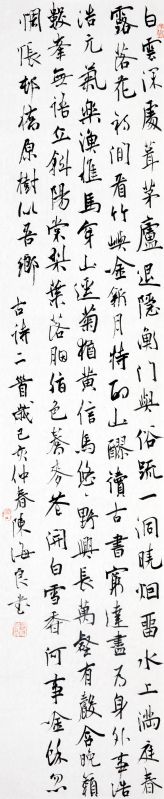 白雲深處葺茅廬退隱衡門與俗疏一洞曉烟留水上滿庭春
露落花初閒看竹嶼唫新月特酌山醪讀古書窮達盡為身外事浩
浩元氣樂漁樵馬穿山逕菊猶黃信馬悠悠野興長萬壑有聲含晚籟
數峯無語立斜陽棠梨葉落胭脂色蕎麥花開白雪香何事唫餘忽
惆悵邨橋原樹似吾鄉 古詩二首歲己亥仲春陳海良書